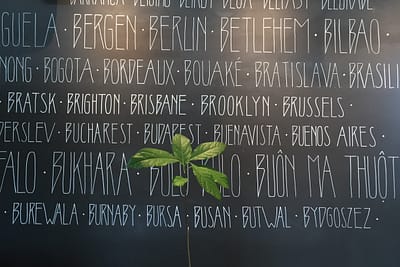 GUELA · BERGEN · BERLIN · BETLEHEM · BILBAO ·
NONG · BOGOTA · BORDEAUX · BOUAKÉ · BRATISLAVA · BRASILI
· BRATSK · BRIGHTON · BRISBANE · BROOKLYN · BRUSSELS ·
DERSLEV · BUCHAREST · BUDAPEST · BUENAVISTA · BUENOS AIRES ·
FALO · BUKHARA · LO · BUÔN MA THUỘT
· BUREWALA · BURNABY · BURSA · BUSAN · BUTWAL · BYDGOSZEZ ·